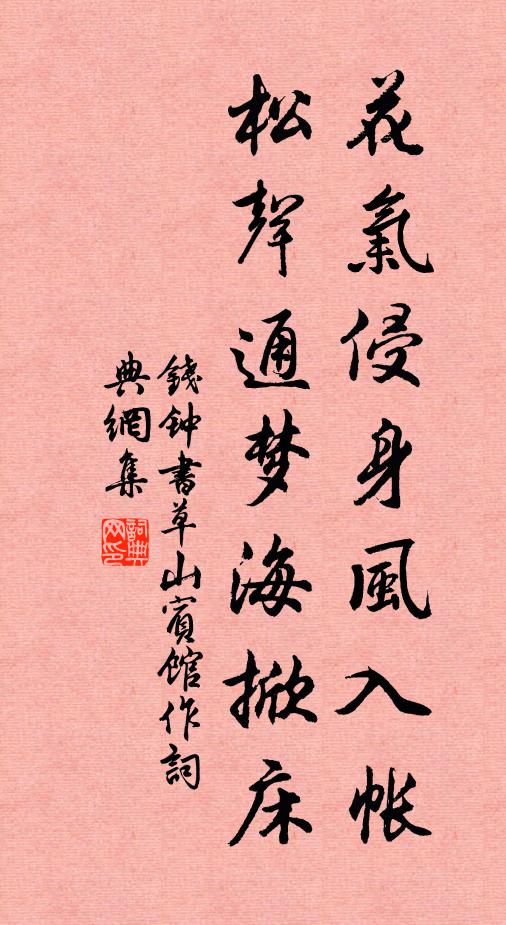 花氣侵身風入帳
松聲通梦海掀床
錢钟書草山賓館作詞
典網集
詞典
网印